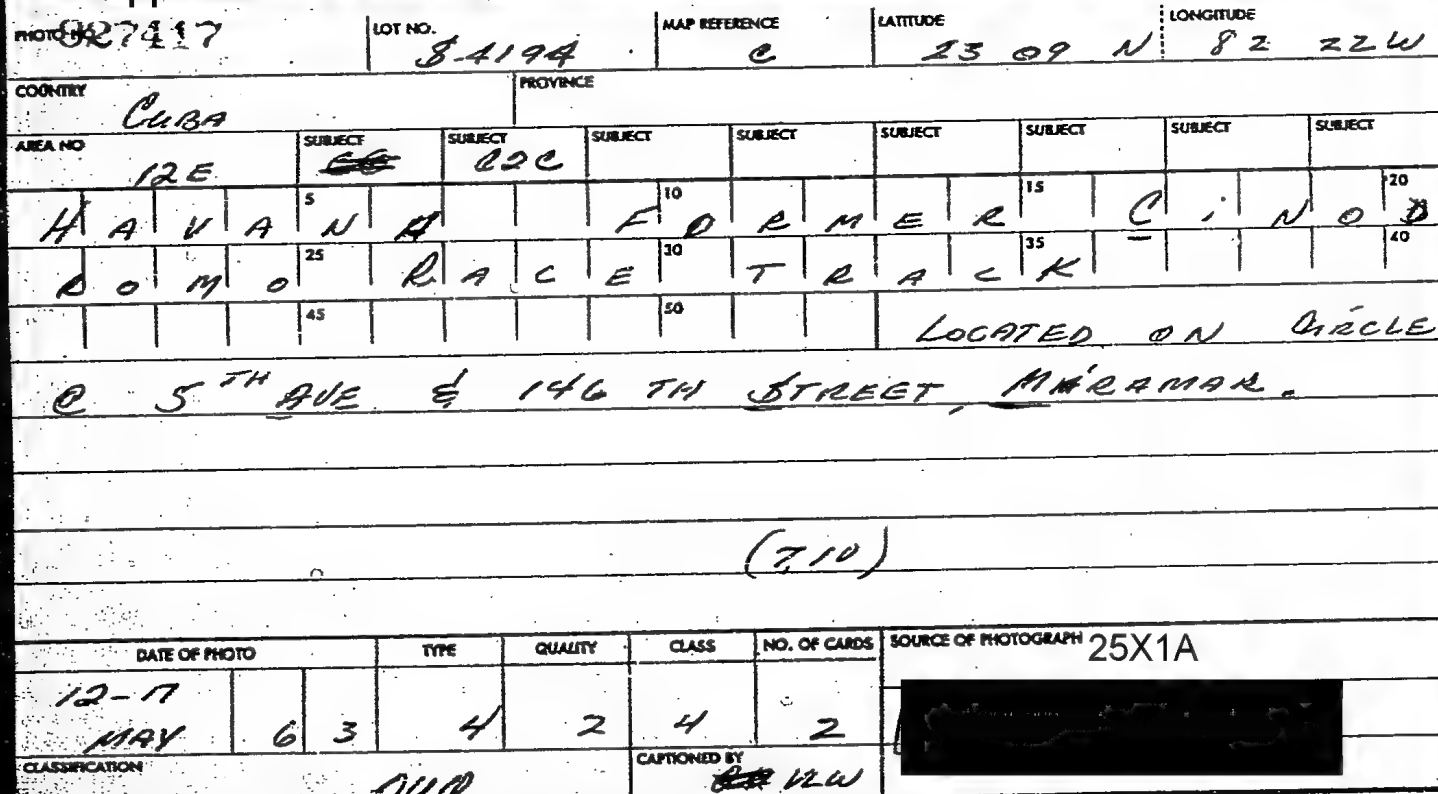 PHOTO NO. 927417 LOT NO. S-4194 MAP REFERENCE C LATITUDE 23 09 N LONGITUDE 82 22W
COUNTRY CUBA PROVINCE
AREA NO 12E SUBJECT SUBJECT C2C SUBJECT SUBJECT SUBJECT SUBJECT SUBJECT SUBJECT
5 10 15 20
HAVANA FORMER CINOD
25 30 35 40
ROMO RACE TRACK
45 50 LOCATED ON CIRCLE
@ 5TH AVE & 146 TH STREET, MIRAMAR.
(7,10)
DATE OF PHOTO TYPE QUALITY CLASS NO. OF CARDS SOURCE OF PHOTOGRAPH 25X1A
12-17
MAY 6 3 4 2 4 2
CLASSIFICATION CAPTIONED BY